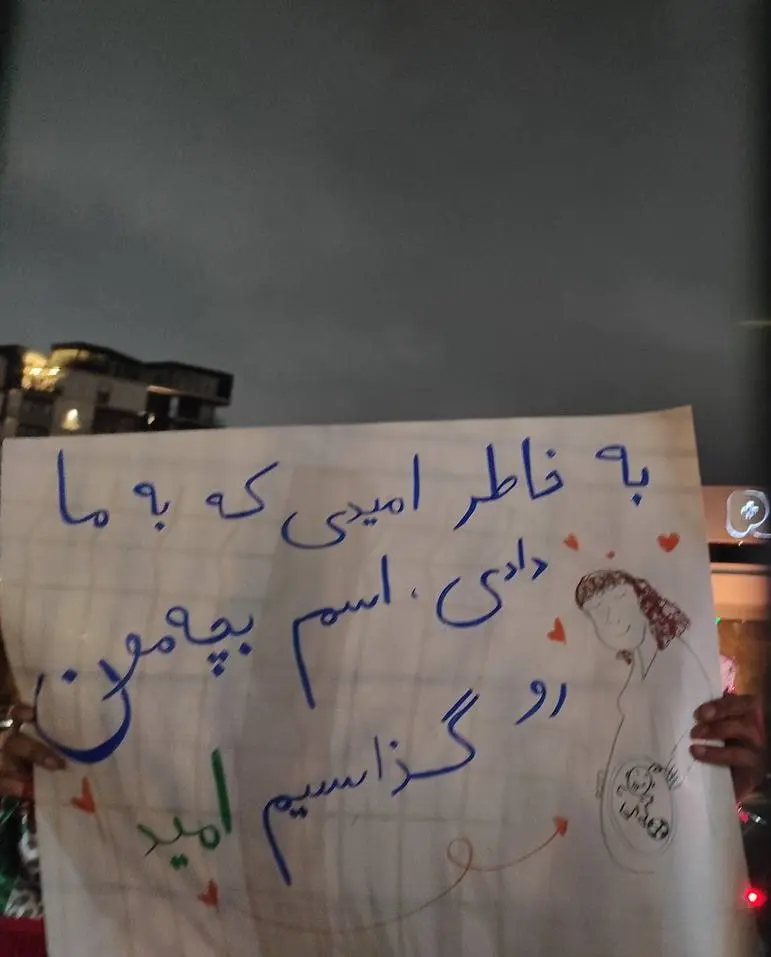 به خاطر امیدی که به ما
دادی، اسم بچه‌مون
رو گذاسیم امید